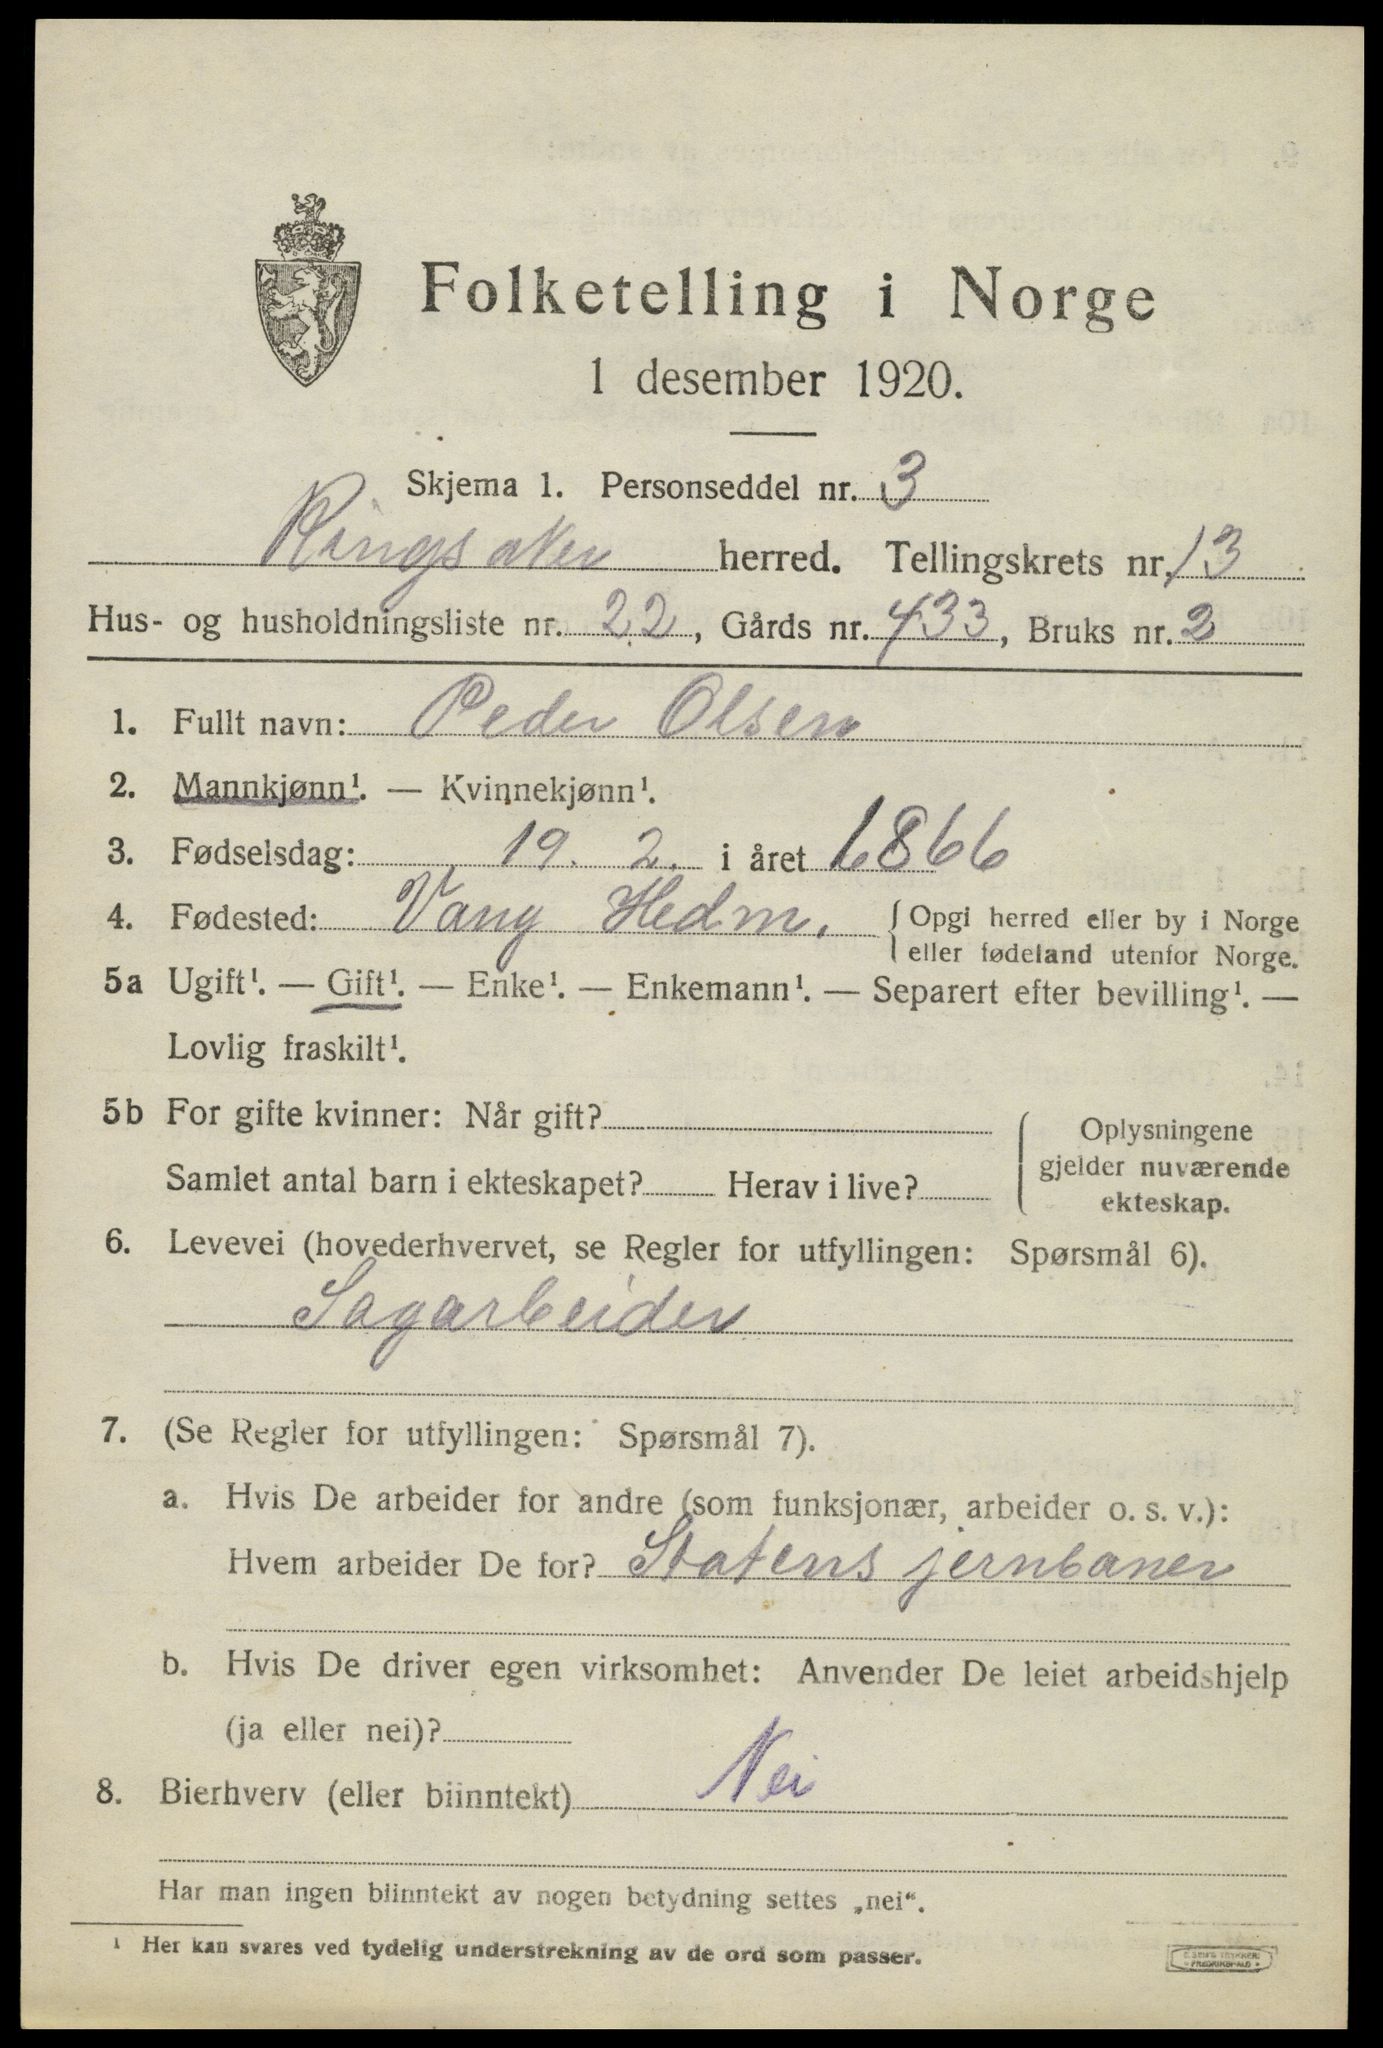 Folketelling i Norge
1 desember 1920.
Skjema 1. Personseddel nr. 3
Ringsaker herred. Tellingskrets nr. 13
Hus- og husholdningsliste nr. 22, Gårds nr. 433, Bruks nr. 2
1. Fullt navn: Peder Olsen
2. Mannkjønn¹. — Kvinnekjønn¹.
3. Fødselsdag: 19. 2. i året 1866
4. Fødested: Vang Hedm. { Opgi herred eller by i Norge
eller fødeland utenfor Norge.
5a Ugift¹. — Gift¹. — Enke¹. — Enkemann¹. — Separert efter bevilling¹. —
Lovlig fraskilt¹.
5b For gifte kvinner: Når gift?
Samlet antal barn i ekteskapet? Herav i live?
Oplysningene
gjelder nuværende
ekteskap.
6. Levevei (hovederhvervet, se Regler for utfyllingen: Spørsmål 6).
Sagarbeider
7. (Se Regler for utfyllingen: Spørsmål 7).
a. Hvis De arbeider for andre (som funksjonær, arbeider o. s. v.):
Hvem arbeider De for? Statens jernbaner
b. Hvis De driver egen virksomhet: Anvender De leiet arbeidshjelp
(ja eller nei)?
8. Bierhverv (eller biinntekt) Nei
Har man ingen biinntekt av nogen betydning settes „nei“.
¹ Her kan svares ved tydelig understrekning av de ord som passer.